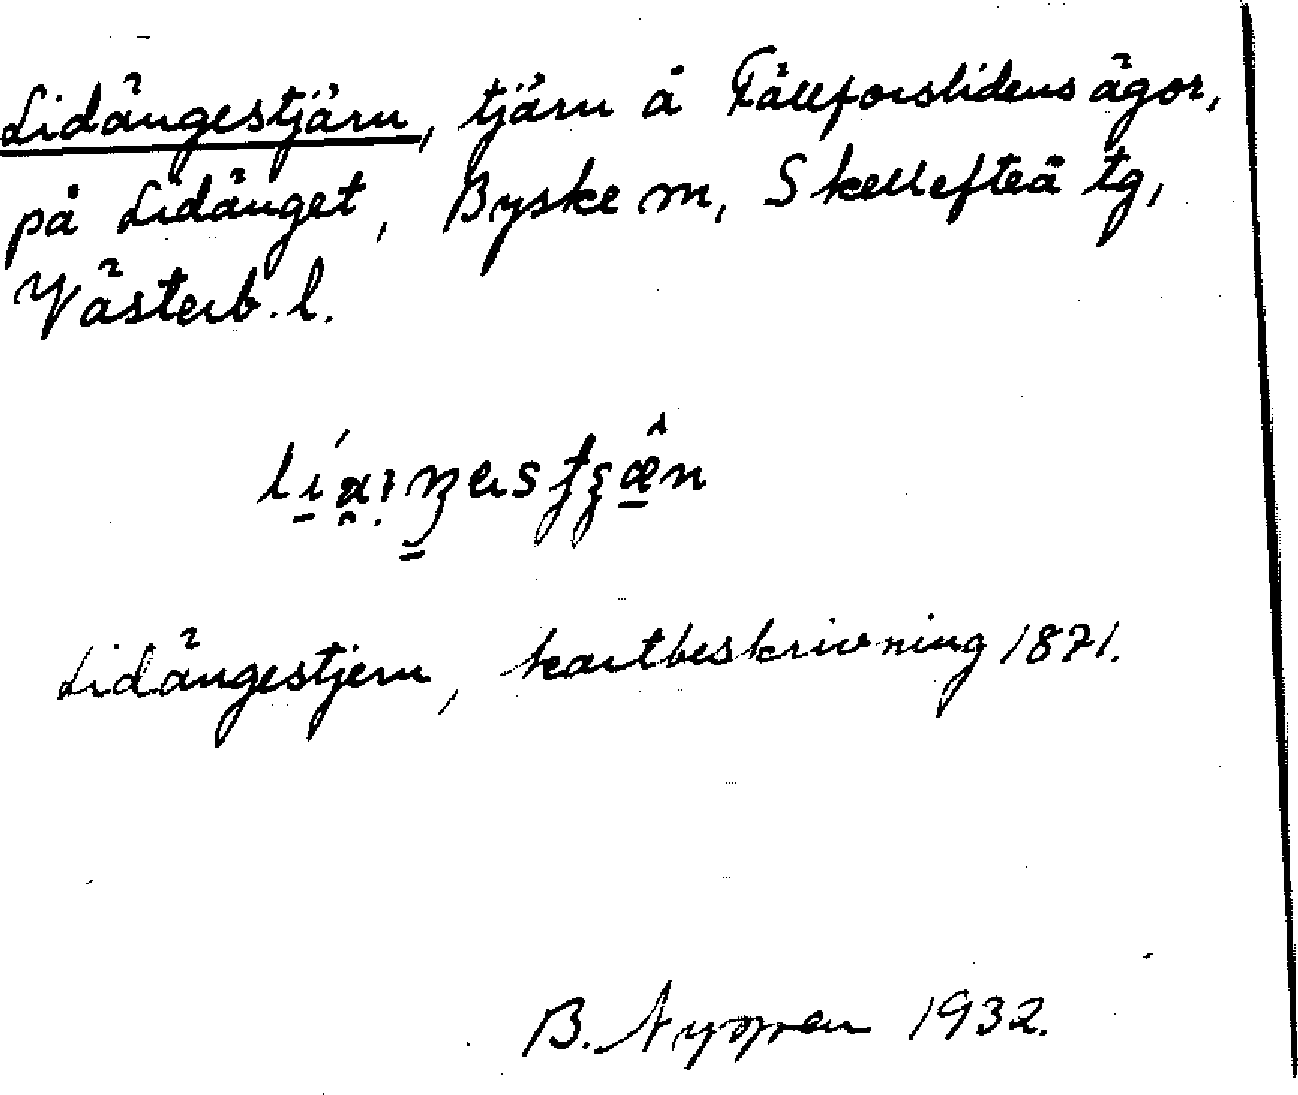 Lidängestjärn, tjärn å Fällforslidens ägor,
på Lidänget, Byske sn, Skellefteå tg,
Västerb. l.
Lidängestjern, kartbeskrivning 1871.
B. 1932.